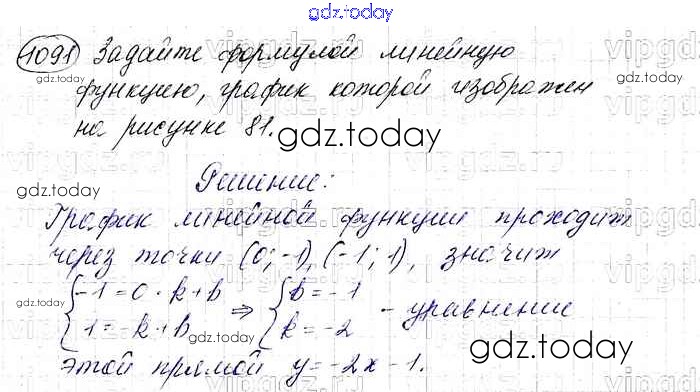 gdz.today
1091 Задайте формулой линейную
функцию, график которой изображен
на рисунке 81.
gdz.today
Решение:
График линейной функции проходит
через точки (0; -1), (-1; 1), значит
{-1 = 0 · k + b ⇒ {b = -1
{1 = -k + b {k = -2 - уравнение
этой прямой y = -2x - 1.
gdz.today
gdz.today
gdz.today
gdz.today
gdz.today
gdz.today